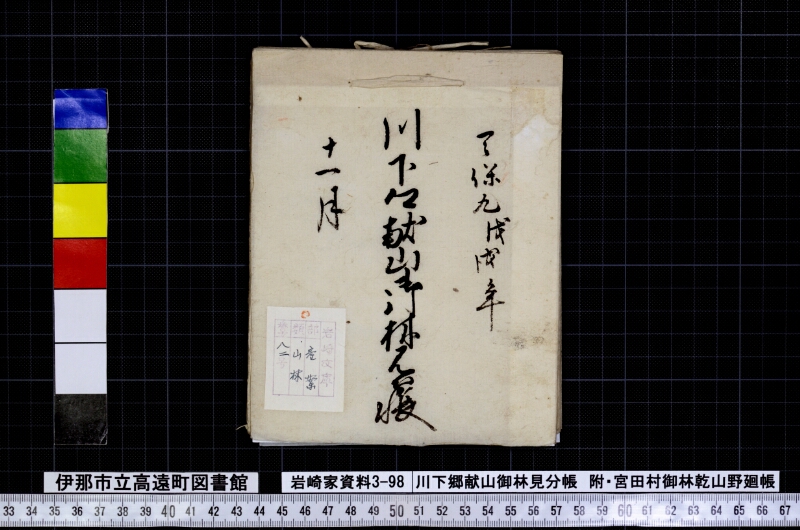 天保九戊戌年
川下郷献山御林見分帳
十一月
岩崎文庫
部 産業
類 山林
号 八二
伊那市立高遠町図書館
岩崎家資料3-98
川下郷献山御林見分帳 附・宮田村御林乾山野廻帳
33 34 35 36 37 38 39 40 41 42 43 44 45 46 47 48 49 50 51 52 53 54 55 56 57 58 59 60 61 62 63 64 65 66 67